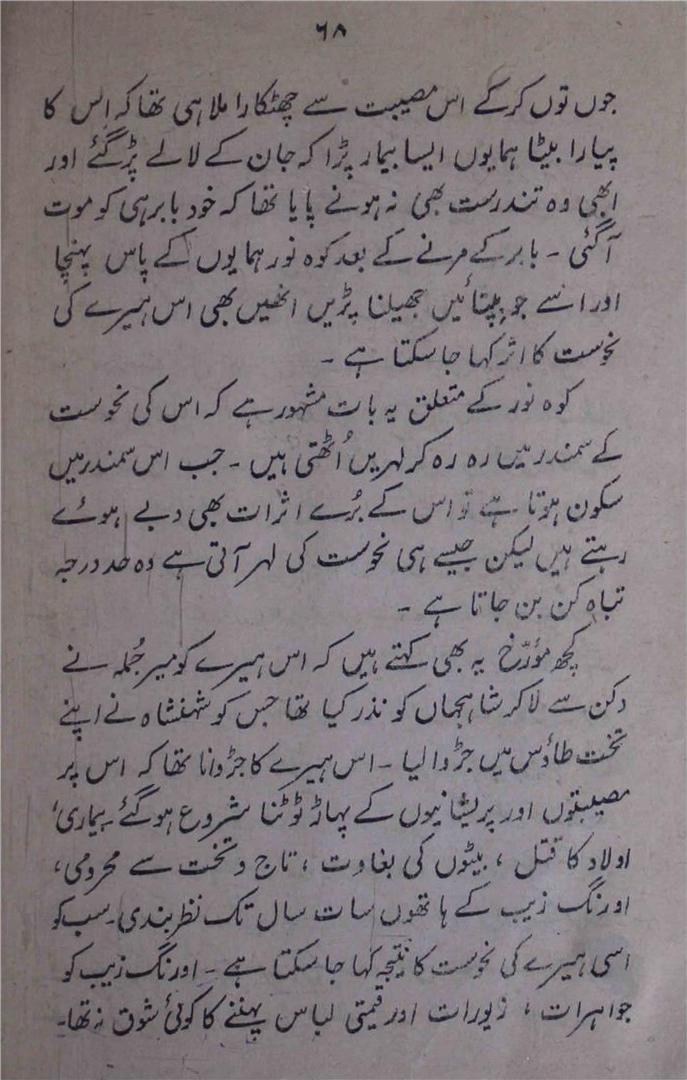 ۶۸
جوں توں کرکے اس مصیبت سے چھٹکارا ملا ہی تھا کہ اس کا
پیارا بیٹا ہمایوں ایسا بیمار پڑا کہ جان کے لالے پڑ گئے اور
ابھی وہ تندرست بھی نہ ہونے پایا تھا کہ خود بابر ہی کو موت
آگئی ۔ بابر کے مرنے کے بعد کوہ نور ہمایوں کے پاس پہنچا
اور اسے جو بپتائیں جھیلنا پڑیں انھیں بھی اس ہیرے کی
نحوست کا اثر کہا جا سکتا ہے ۔
کوہ نور کے متعلق یہ بات مشہور ہے کہ اس کی نحوست
کے سمندر میں رہ رہ کر لہریں اُٹھتی ہیں ۔ جب اس سمندر میں
سکون ہوتا ہے تو اس کے بُرے اثرات بھی دبے ہوئے
رہتے ہیں لیکن جیسے ہی نحوست کی لہر آتی ہے وہ حد درجہ
تباہ کن بن جاتا ہے ۔
کچھ مؤرّخ یہ بھی کہتے ہیں کہ اس ہیرے کو میر جُملہ نے
دکن سے لاکر شاہجہاں کو نذر کیا تھا جس کو شہنشاہ نے اپنے
تخت طاؤس میں جڑوا لیا ۔ اس ہیرے کا جڑوانا تھا کہ اس پر
مصیبتوں اور پریشانیوں کے پہاڑ ٹوٹنا شروع ہوگئے۔ بیماری،
اولاد کا قتل ، بیٹوں کی بغاوت ، تاج و تخت سے محرومی،
اورنگ زیب کے ہاتھوں سات سال تک نظر بندی۔ سب کو
اسی ہیرے کی نحوست کا نتیجہ کہا جا سکتا ہے ۔ اورنگ زیب کو
جواہرات ، زیورات اور قیمتی لباس پہننے کا کوئی شوق نہ تھا۔